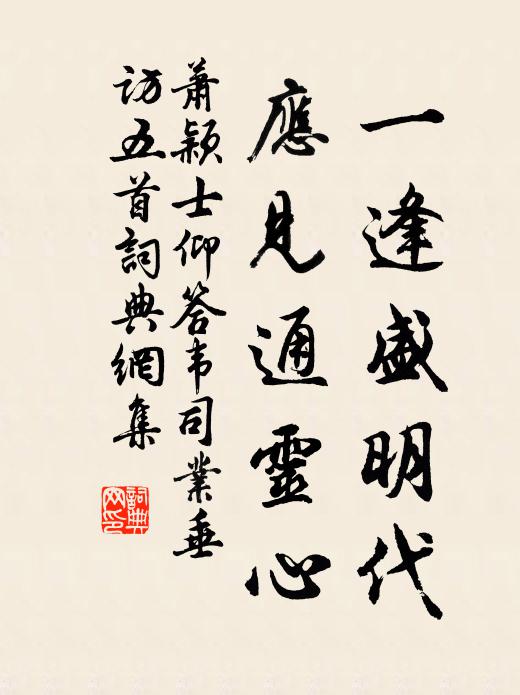 一逢盛明代
應見通靈心
萧颖士仰答韦司業垂
访五首詞典網集
詞典网印